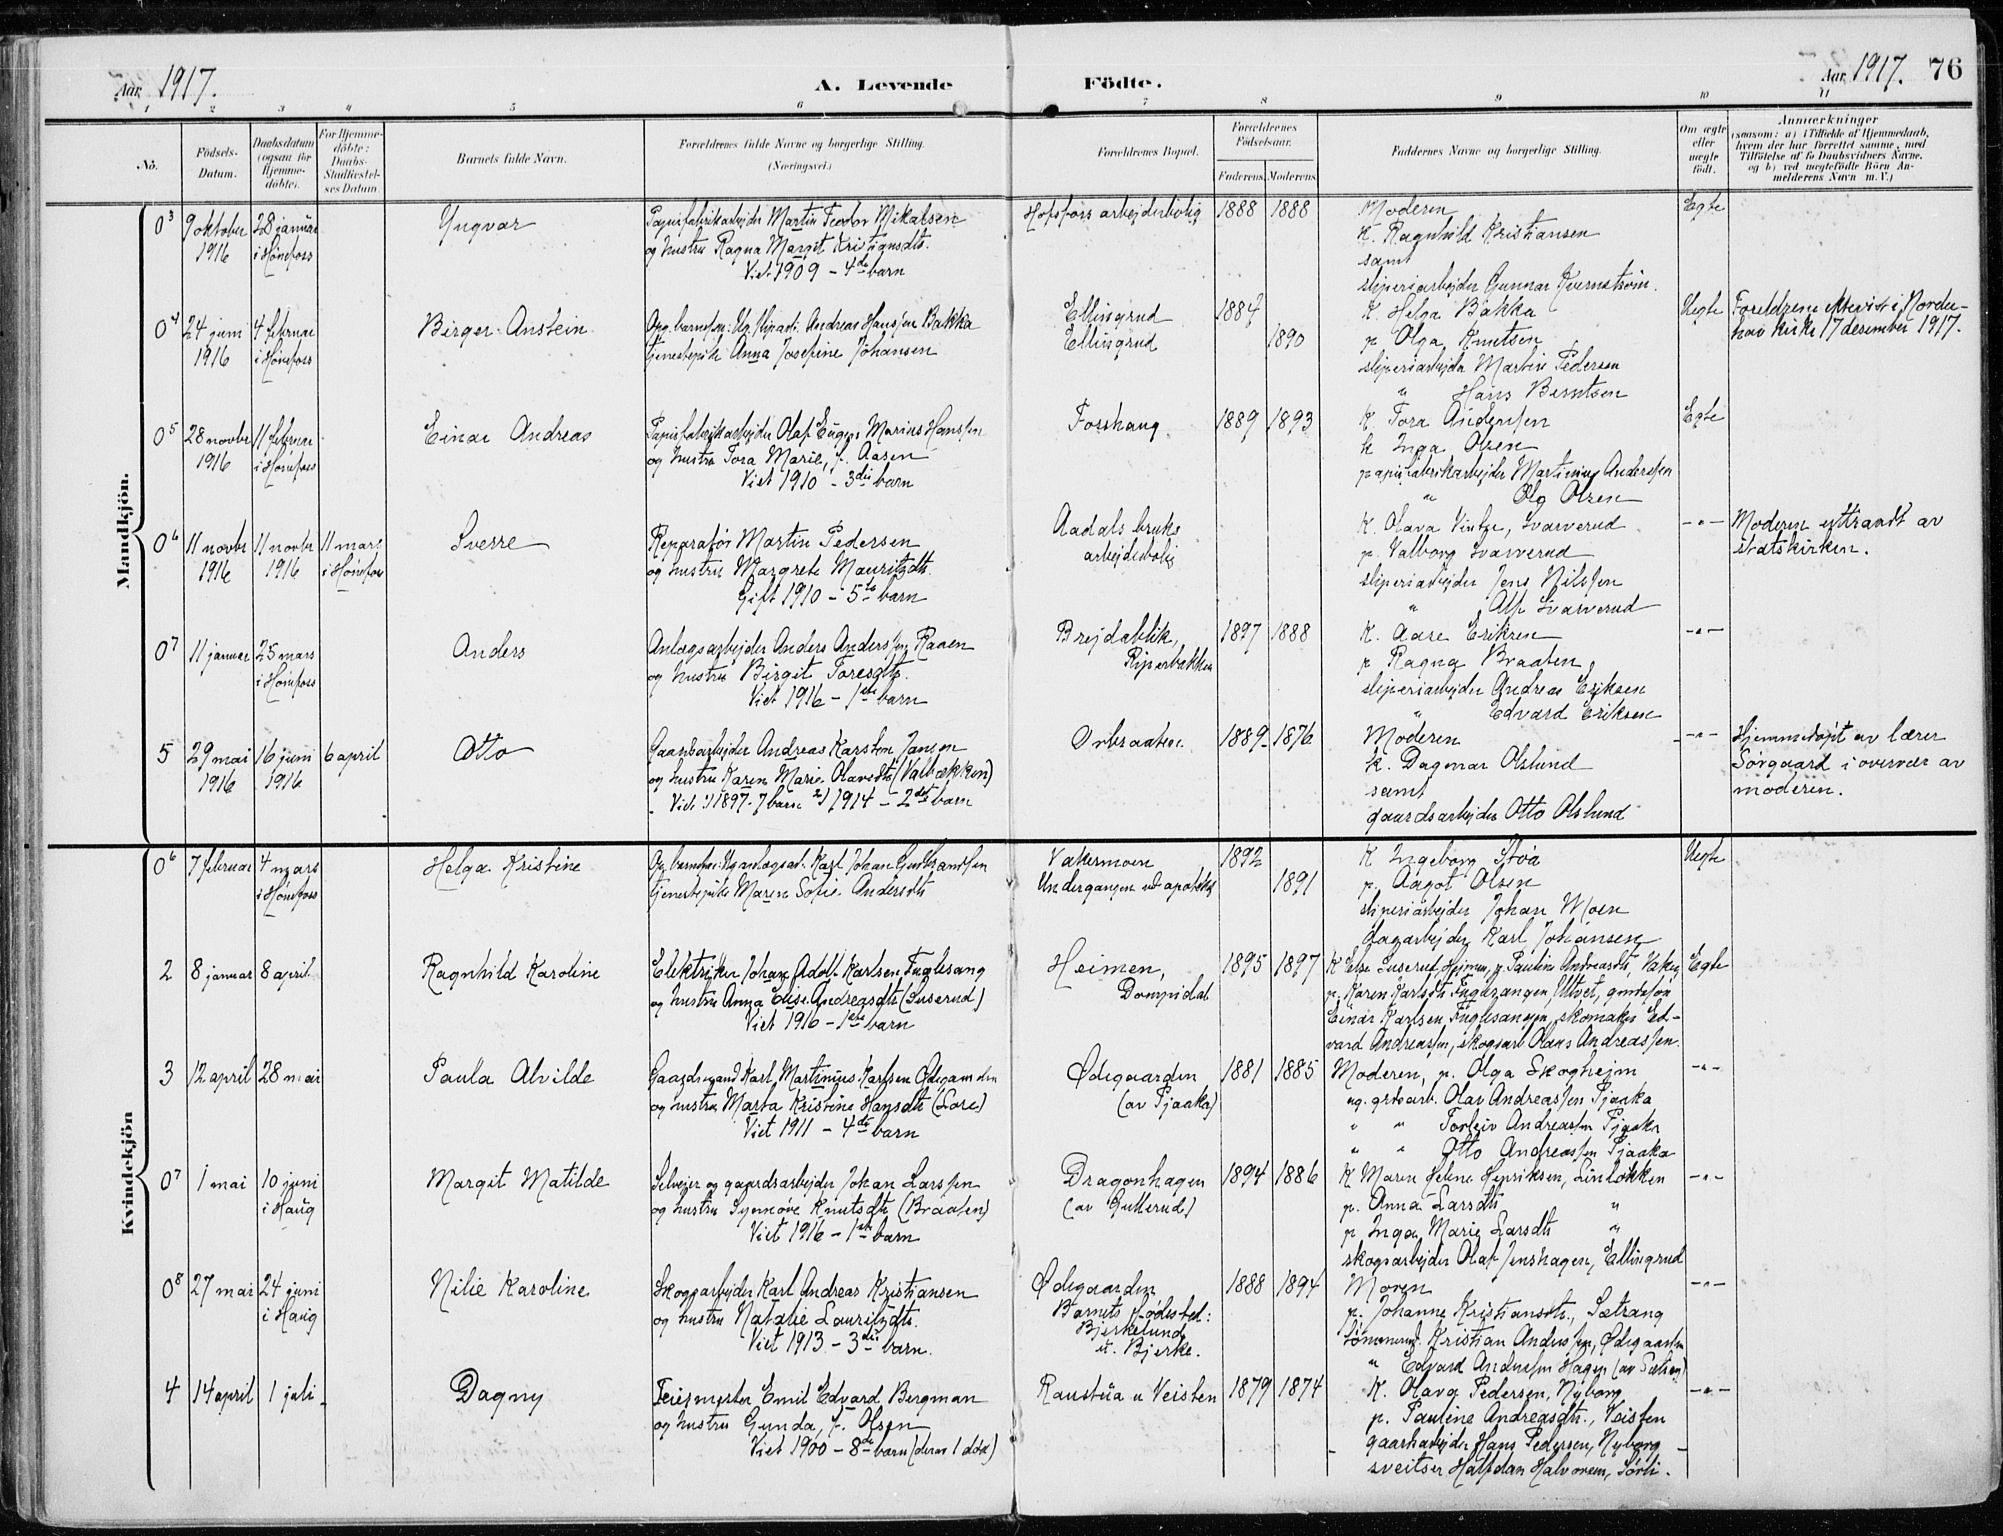 Aar 1917.
A. Levende Födte.
Aar 1917. 76
1 2 3 4 5 6 7 8 9 10 11
No.
Födsels-Datum.
Daabsdatum (ogsaa for Hjemme-döbte).
For Hjemme-döbte: Daabs-Stadfæstel-ses Datum.
Barnets fulde Navn.
Forældrenes fulde Navne og borgerlige Stilling.
(Næringsvei.)
Forældrenes Bopæl.
Forældrenes Födselsaar.
Faderens. Moderens.
Faddernes Navne og borgerlige Stilling.
Om ægte eller uægte födt.
Anmærkninger
(saasom: a) i Tilfælde af Hjemmedaab,
hvem der har forrettet samme, med
Tilföielse af to Daabsvidners Navne,
og b) ved uægtefödte Börn An-
melderens Navn m. V.)
Mandkjön.
0 3 9 oktober 1916 28 januar i Hönefoss
Yngvar
Papirfabrikarbejder Martin Teodor Mikalsen
og hustru Ragna Margit Kristiansdtr.
Viet 1909 - 4de barn
Hofsfoss arbejderbolig 1888 1888
Moderen
K. Ragnhild Kristiansen
samt
sliperiarbejder Gunnar Kvernstrøm.
Egte
0 4 24 juni 1916 4 februar i Hönefoss
Birger Anstein
Andreas Hanssen Bakka
tjenestepike Anna Josefine Johansen
Ellingrud 1884
Ellingrud 1890
K. Helga Bakka
p. Olga Knutsen
sliperiarbejder Martin Pedersen
" Hans Berntsen
Uegte
Foreldrene ektevist i Norder-
hov kirke 17 desember 1917.
0 5 28 novbr 1916 11 februar i Hönefoss
Einar Andreas
Papirfabrikarbejder Olaf Eugen Marius Hanssen
og hustru Tora Marie, f. Aasen
Viet 1910 - 3die barn
Fosshaug 1889 1893
K. Tora Anderssen
k Inga Olsen
papirfabrikarbejder Martinius Anderssen
" Ole Olsen
Egte
0 6 11 novbr 1916 11 novbr 1916 11 mars i Hönefoss
Sverre
Reparatör Martin Pedersen
og hustru Margrete Mauritzdtr.
Gift 1910 - 5te barn
Aadals bruks
arbejderbolig
K. Olava Vintze, Svarverud
p. Valborg Svarverud
sliperiarbejder Jens Nilssen
" Alf Svarverud
- " -
Moderen uttraadt av
statskirken.
0 7 11 januar 25 mars i Hönefoss
Anders
Anlægsarbejder Anders Anderssen Raaen
og hustru Birgit Toresdtr.
Viet 1916 - 1ste barn
Brejdablik,
Riperbakken
1897 1888
K. Aase Eriksen
p Ragna Braaten
sliperiarbejder Andreas Eriksen
" Edvard Eriksen
- " -
5 29 mai 1916 16 juni 1916 6 april
Otto
Gaardsarbejder Andreas Karsten Jansen
og hustru Karen Marie Olavsdtr (Valbækken)
Viet 1) 1897 - 7 barn 2) 1914 - 2det barn
Onbraaten 1889 1876
Moderen
k. Dagmar Olslund
samt
gaardsarbejder Otto Olslund
- " -
Hjemmedöpt av lærer
Sörgaard i overvær av
moderen.
Kvindekjön
0 6 7 februar 4 mars i Hönefoss
Helga Kristine
Karl Johan Gulbrandsen
tjenestepike Maren Sofie Andersdtr
Vakermoen 1892
Undergangen ved apoteket 1891
K Ingeborg Støa
p. Aagot Olsen
sliperiarbejder Johan Moen
dagarbejder Karl Johansen
Uegte
2 8 januar 8 april
Ragnhild Karoline
Elektriker Johan Adolf Karlsen Fuglesang
og hustru Anna Elise Andreasdtr (Luserud)
Viet 1916 - 1ste barn
Heimen,
Dompidal
1895 1897
K Else Luserud, Heimen, p. Pauline Andreasdtr, Vaker,
p. Karen Karlsdtr Fuglesangen, Utvet, gmdssøn
Einar Karlsen Fuglesangen, skomaker Ed-
vard Andreassen, skogsarb Olaus Andreassen.
Egte
3 12 april 28 mai
Paula Alvilde
Gaardmand Karl Martinius Karlsen Ødegaarden
og hustru Marta Kristine Hansdtr (Lore)
Viet 1911 - 4de barn
Ødegaarden
(av Tjaaka)
1881 1885
Moderen, p. Olga Skoghejm
ug. grdsarb. Olav Andreassen Tjaaka
" " Torleiv Andreassen Tjaaka
" " Otto Andreassen Tjaaka
- " -
0 7 1 mai 10 juni i Haug
Margit Matilde
Selvejer og gaardsarbejder Johan Larssen
og hustru Synnöve Knutsdtr (Braaten)
Viet 1916 - 1ste barn
Dragonhagen
(av Gullerud)
1894 1886
K Maren Helene Henriksen, Linløkken
p. Anna Larsdtr "
p Inga Marie Larsdtr "
skogsarbejder Olaf Jenshagen, Ellingrud
- " -
0 8 27 mai 24 juni i Haug
Nilie Karoline
Skogsarbejder Karl Andreas Kristiansen
og hustru Natalie Lauritzdtr.
Viet 1913 - 3die barn.
Ødegaarden
Barnets fødested:
Bjerkelund
u. Bjerke.
1888 1894
Moren
p. Johanne Kristiansdtr., Sætrang
Tömmerm. Kristian Anderssen, Ødegaarden
" Edvard Anderssen Hagen
- " -
4 14 april 1 juli
Dagny
Feiermester Emil Edvard Bergman
og hustru Gunda, f. Olsen
Viet 1900 - 8de barn (derav 1 død)
Raustua u Veisten 1879 1874
K. Olava Pedersen, Nyborg
p. Pauline Andreasdtr., Veisten
gaardsarbejder Hans Pedersen, Nyborg
sveitser Halfdan Halvorsen, Sörli.
- " -